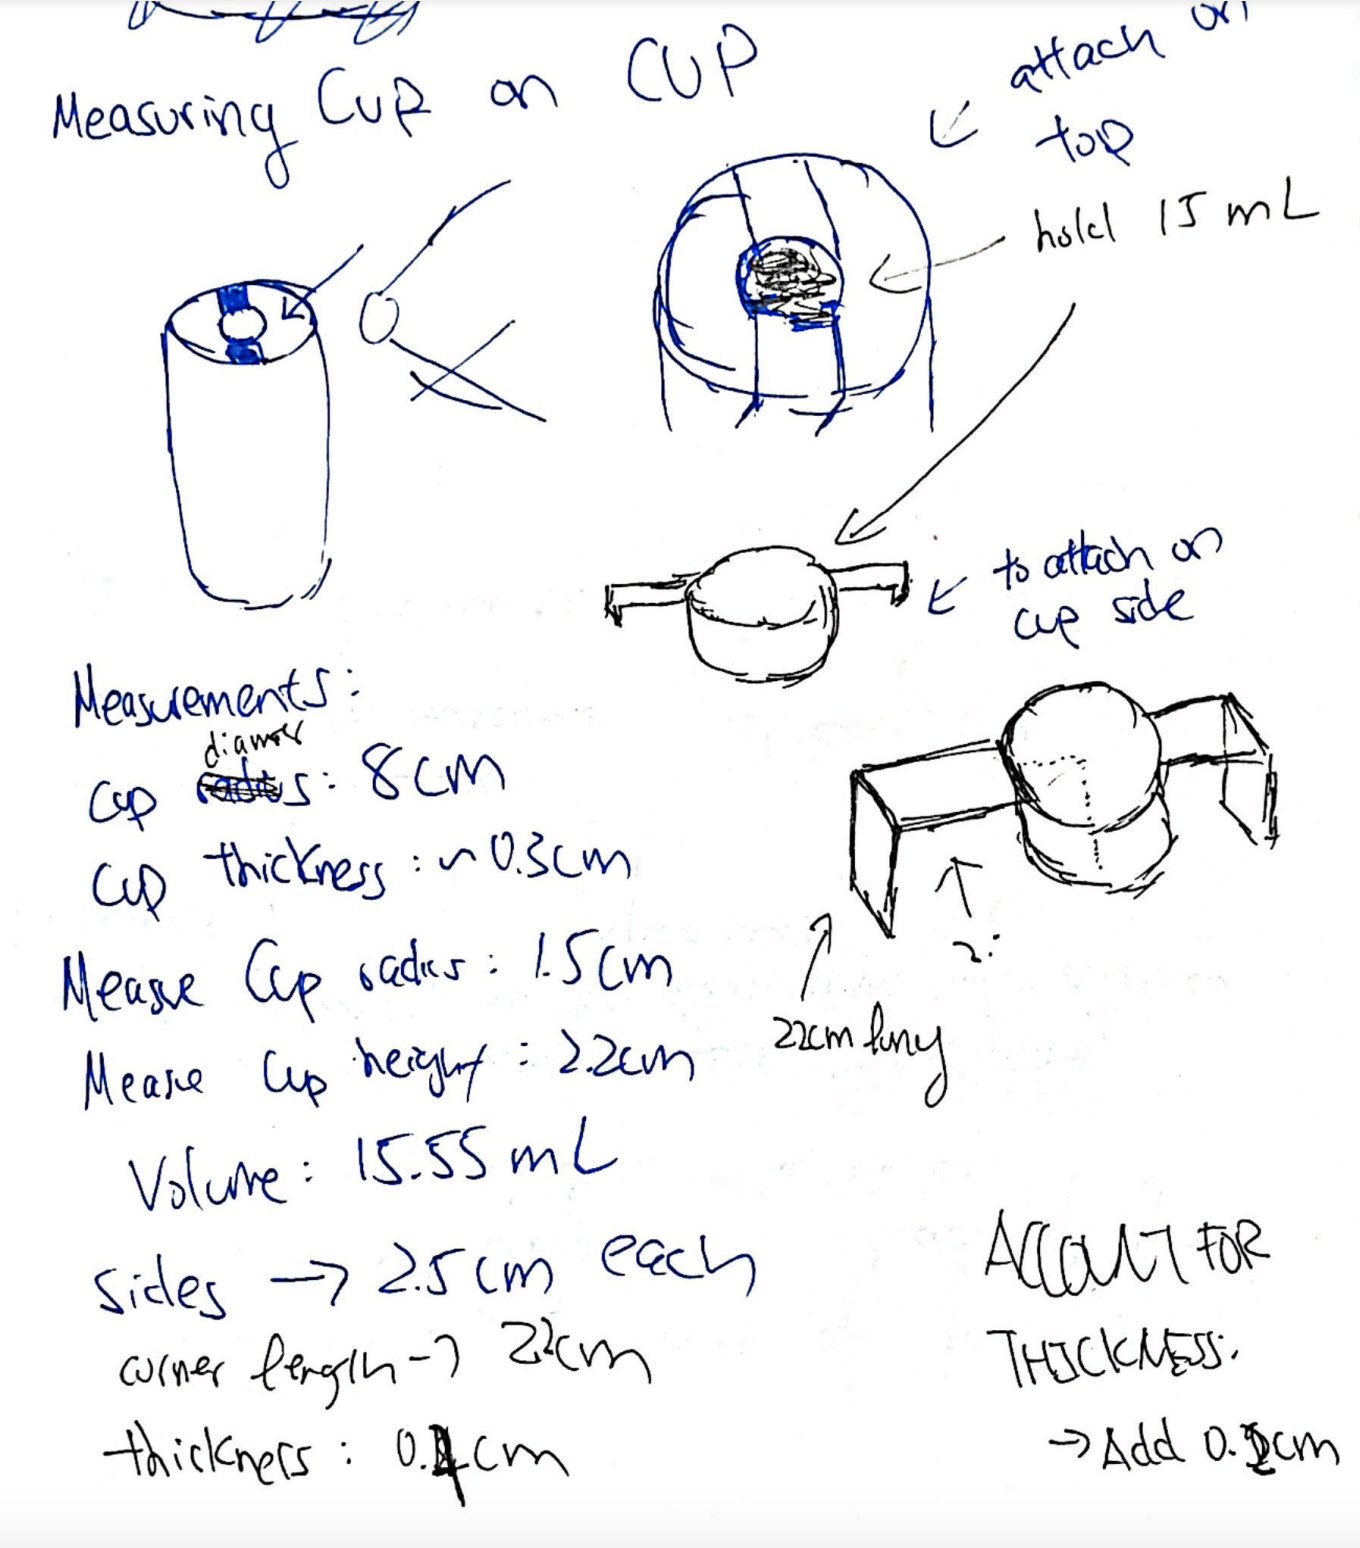 Measuring Cup on CUP
attach on
top
hold 15 mL
to attach on
cup side
Measurements:
diameter
Cup radius: 8cm
Cup thickness: ~0.3cm
Measure Cup radius: 1.5cm
Measure Cup height: 2.2cm
Volume: 15.55 mL
sides → 2.5cm each
corner length → 22cm
thickness: 0.4cm
2.
22cm long
ACCOUNT FOR
THICKNESS.
→ Add 0.2cm